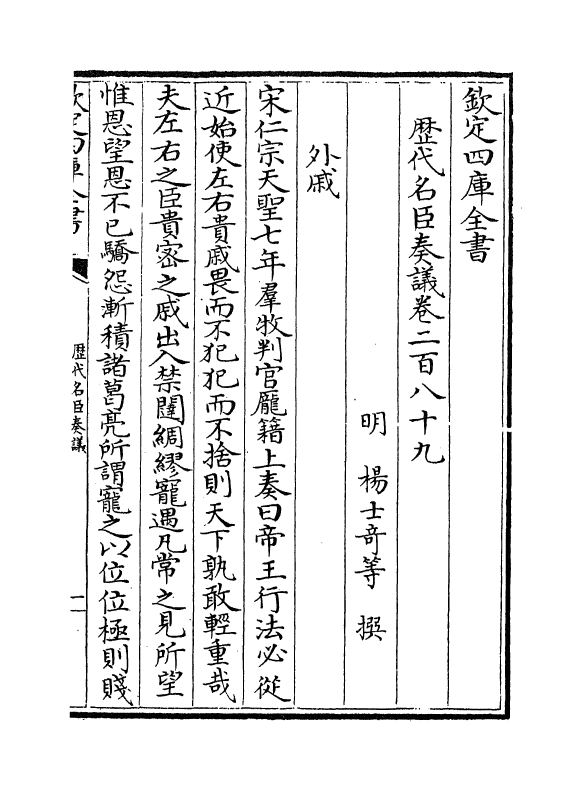 欽定四庫全書
歴代名臣奏議卷二百八十九
明 楊士竒等 撰
外戚
宋仁宗天聖七年羣牧判官龎籍上奏曰帝王行法必從
近始使左右貴戚畏而不犯犯而不捨則天下孰敢輕重哉
夫左右之臣貴宻之戚出入禁闥綢繆寵遇凡常之見所望
惟恩望恩不已驕怨漸積諸葛亮所謂寵之以位位極則賤
欽定四庫全書
歴代名臣奏議